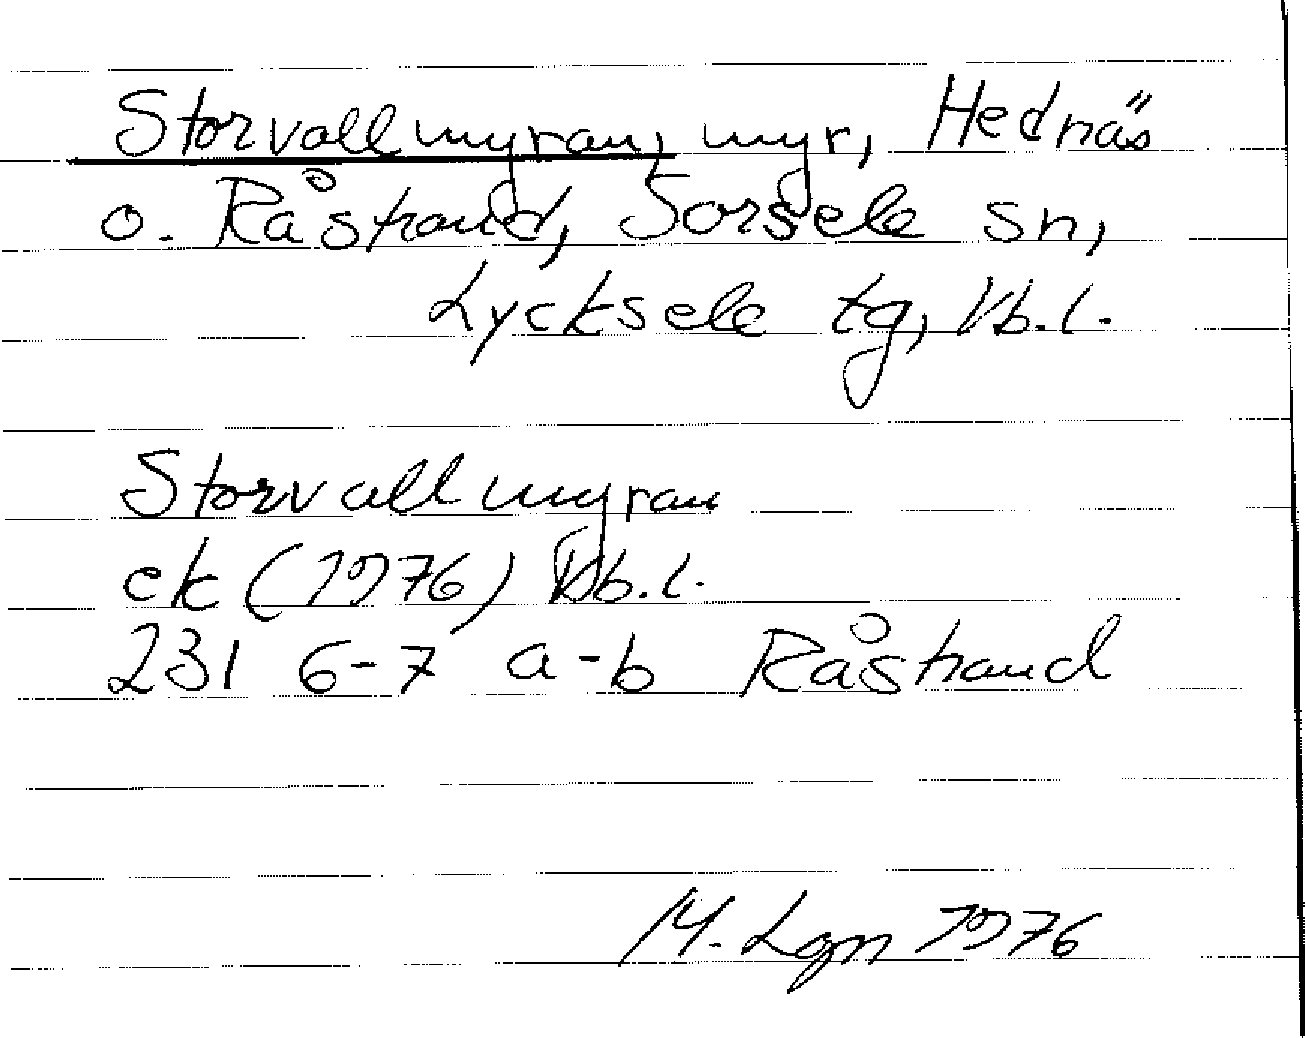 Storvallmyran, myr, Hednäs
o. Råstrand, Sorsele sn,
Lycksele tg, Vb.l.
Storvallmyran
ek (1976) Vb.l.
231 6-7 a-b Råstrand
M. Lgn 1976